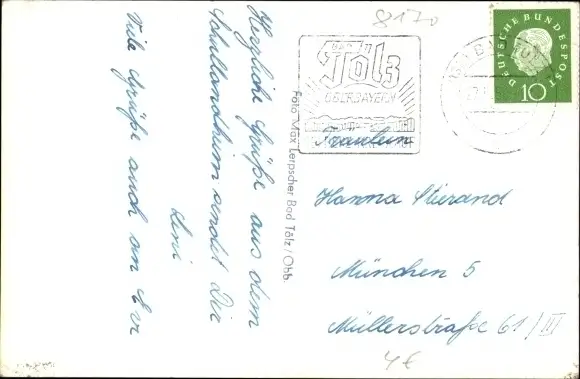 8170
BAD
Tölz
OBERBAYERN
DEUTSCHE BUNDESPOST
10
Herzliche Grüße aus dem
Schullandheim sendet Dir
Leni
Viele Grüße auch an Evi
Foto Max Lerpscher Bad Tölz / Obb.
Fräulein
Hanna Stierand
München 5
Müllerstraße 61/III
4€